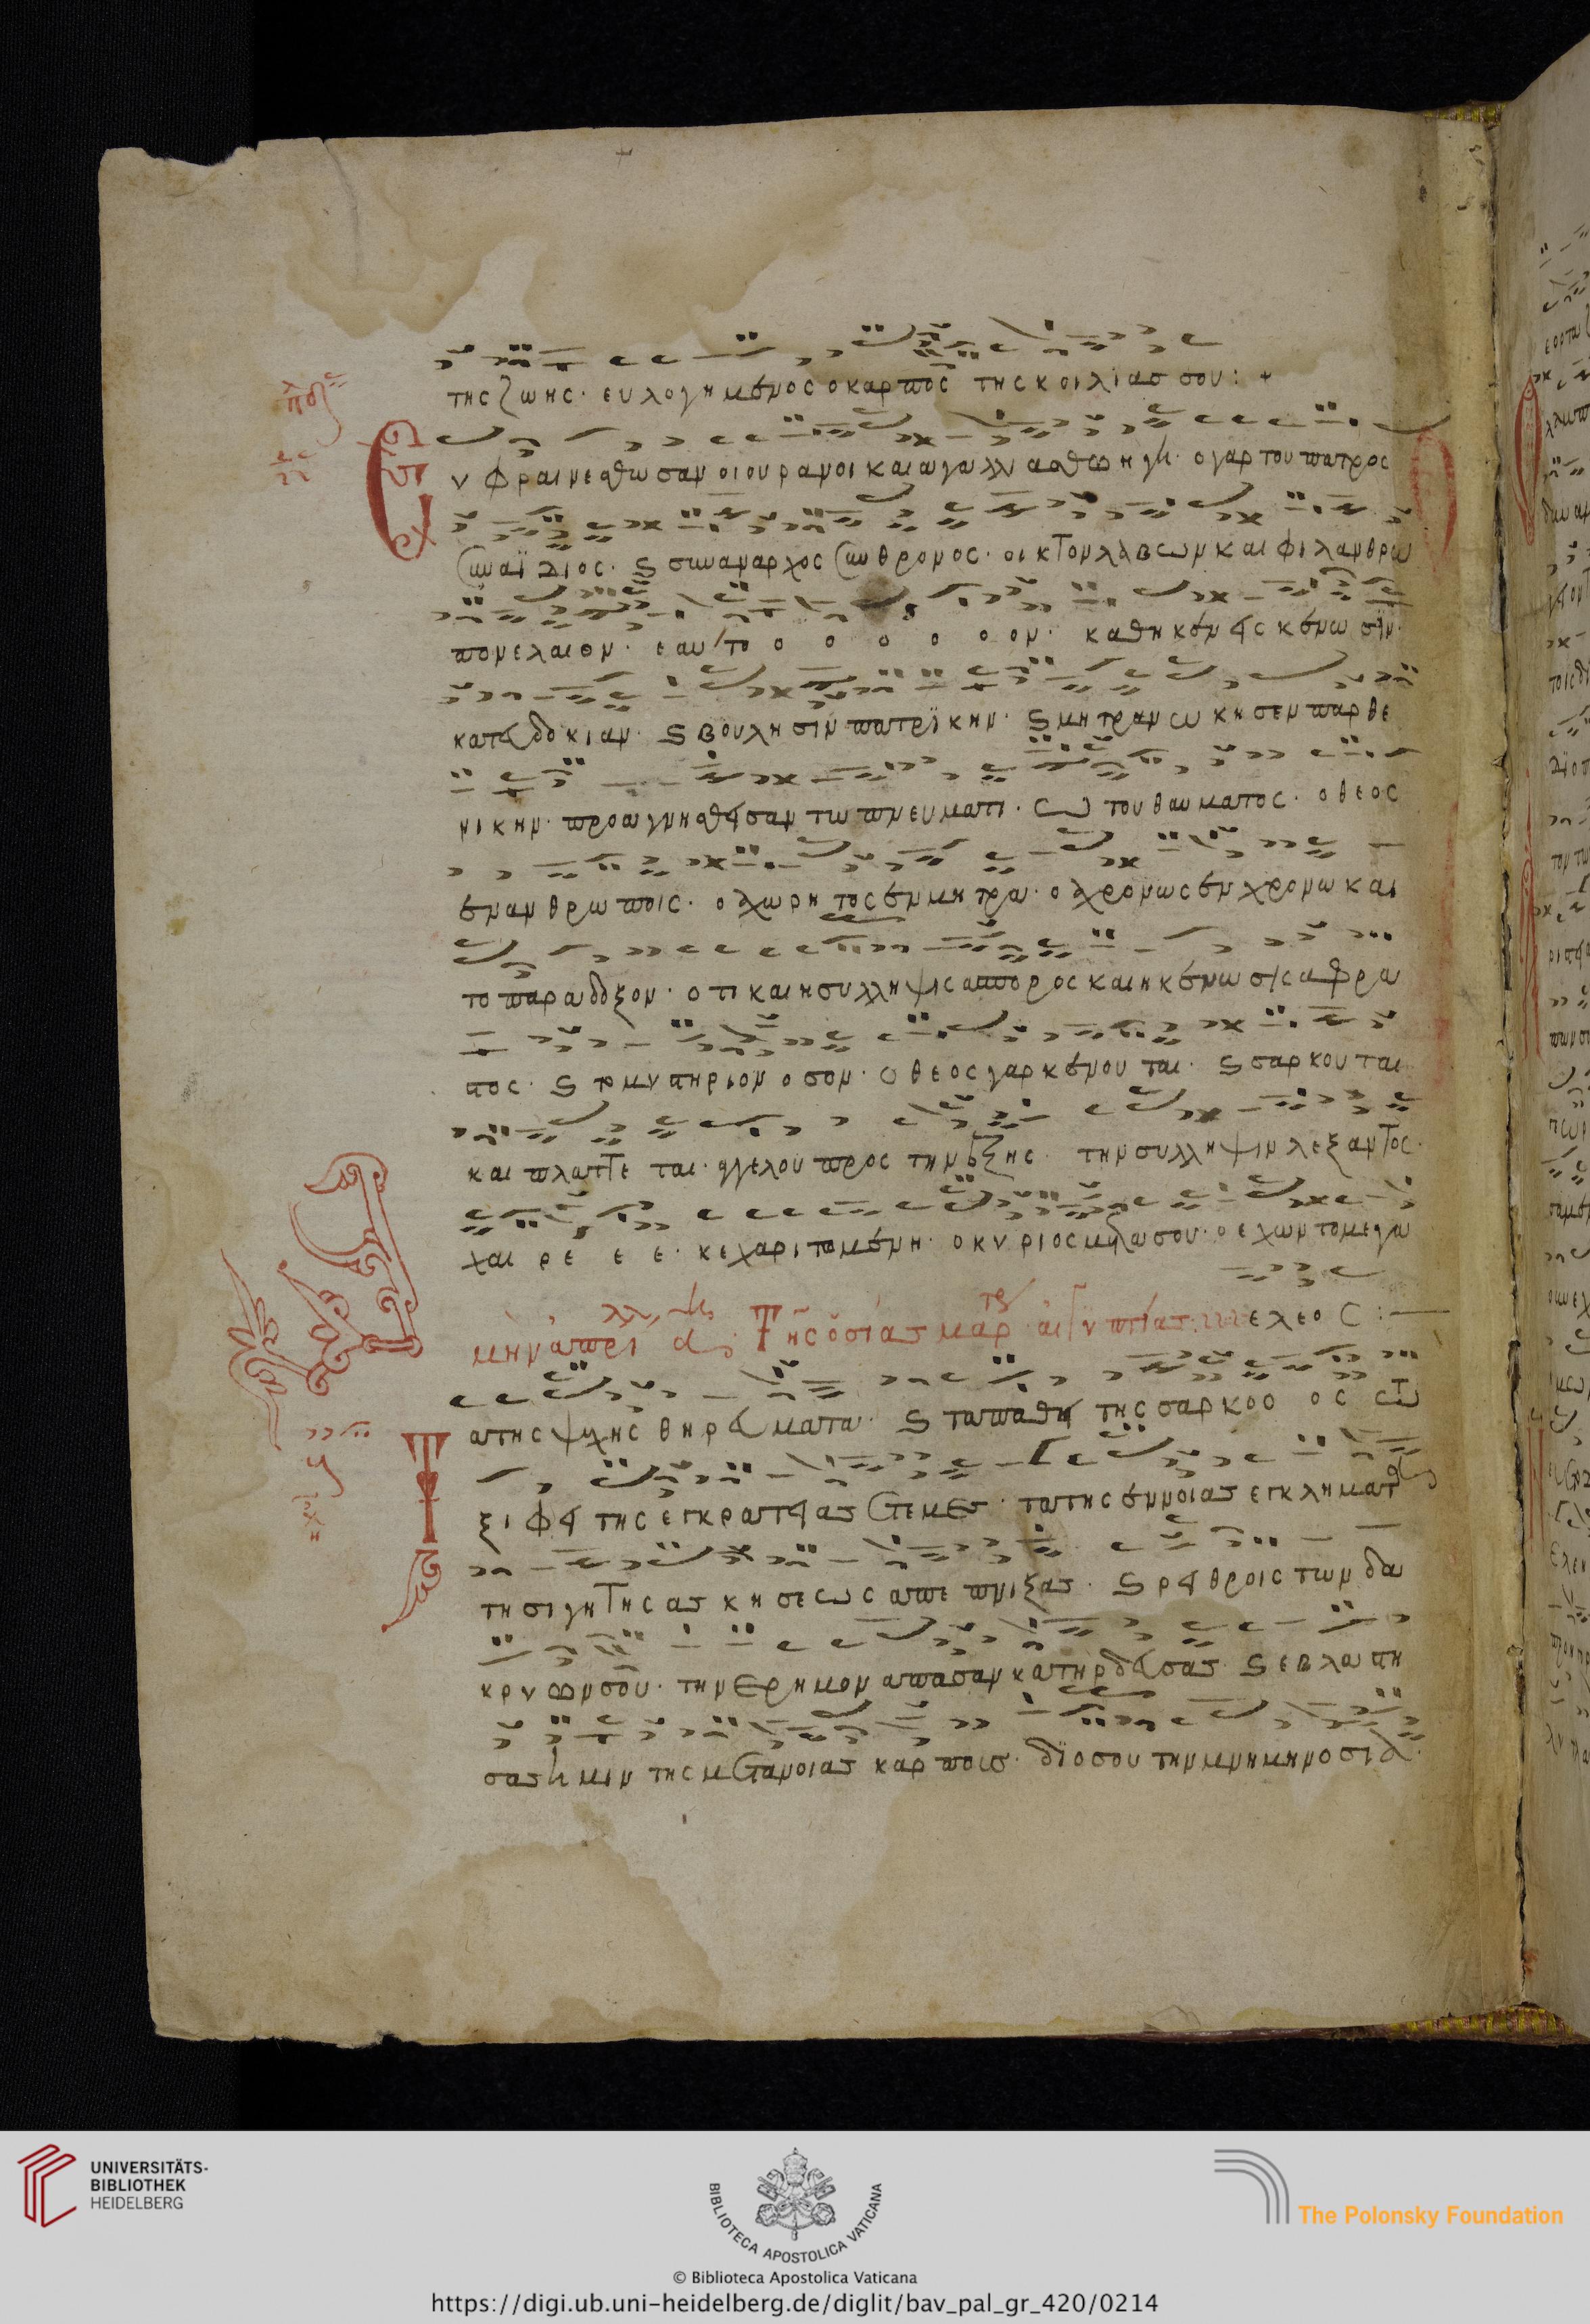 της ζωης· ευλογημενος ο καρπος της κοιλιας σου: +
Ευφραινεσθωσαν οι ουρανοι και αγαλλιασθω η γη· ο γαρ του πατρος
συναϊδιος· ϛ συναναρχος συνθρονος· οικτον λαβων και φιλανθρω
πον ελαιον· εαυτο ο ο ο ο ο ον· καθηκεν εις κενωσιν·
κατ ευδοκιαν· ϛ βουλησιν πατρϊκην· ϛ μητραν ωκησεν παρθε
νικην· προαγνισθεισαν τω πνευματι· ω του θαυματος· ο θεος
εν ανθρωποις· ο αχωρητος εν μητρα· ο αχρονως εν χρονω και
το παραδοξον· οτι και η συλληψις ασπορος και η κενωσις αφρα
στος· ϛ το μυστηριον οσον· ο θεος γαρ κενουται· ϛ σαρκουται
και πλαττεται· αγγελου προς την
την συλληψιν λεξαντος·
χαιρε ε ε· κεχαριτομενη· ο κυριος μετα σου· ο εχων το μεγα
ελεος :—
μην απρι α της οσιας μαρ αιγυπτιας
Τα της ψχης θηρευματα· ϛ τα παθη της σαρκοο ος τω
ξιφει της εγκρατειας ετεμες· τα της εννοιας εγκληματα
τη σιγη της ασκησεως απεπνιξας· ϛ ρειθροις των δα
κρυων σου· την ερημον απασαν κατηρδευσας· ϛ εβλαστη
σας ημιν της μετανοιας καρπους· δϊο σου την μνημην οσια·
UNIVERSITÄTS-
BIBLIOTHEK
HEIDELBERG
BIBLIOTECA APOSTOLICA VATICANA
The Polonsky Foundation
© Biblioteca Apostolica Vaticana
https://digi.ub.uni-heidelberg.de/diglit/bav_pal_gr_420/0214